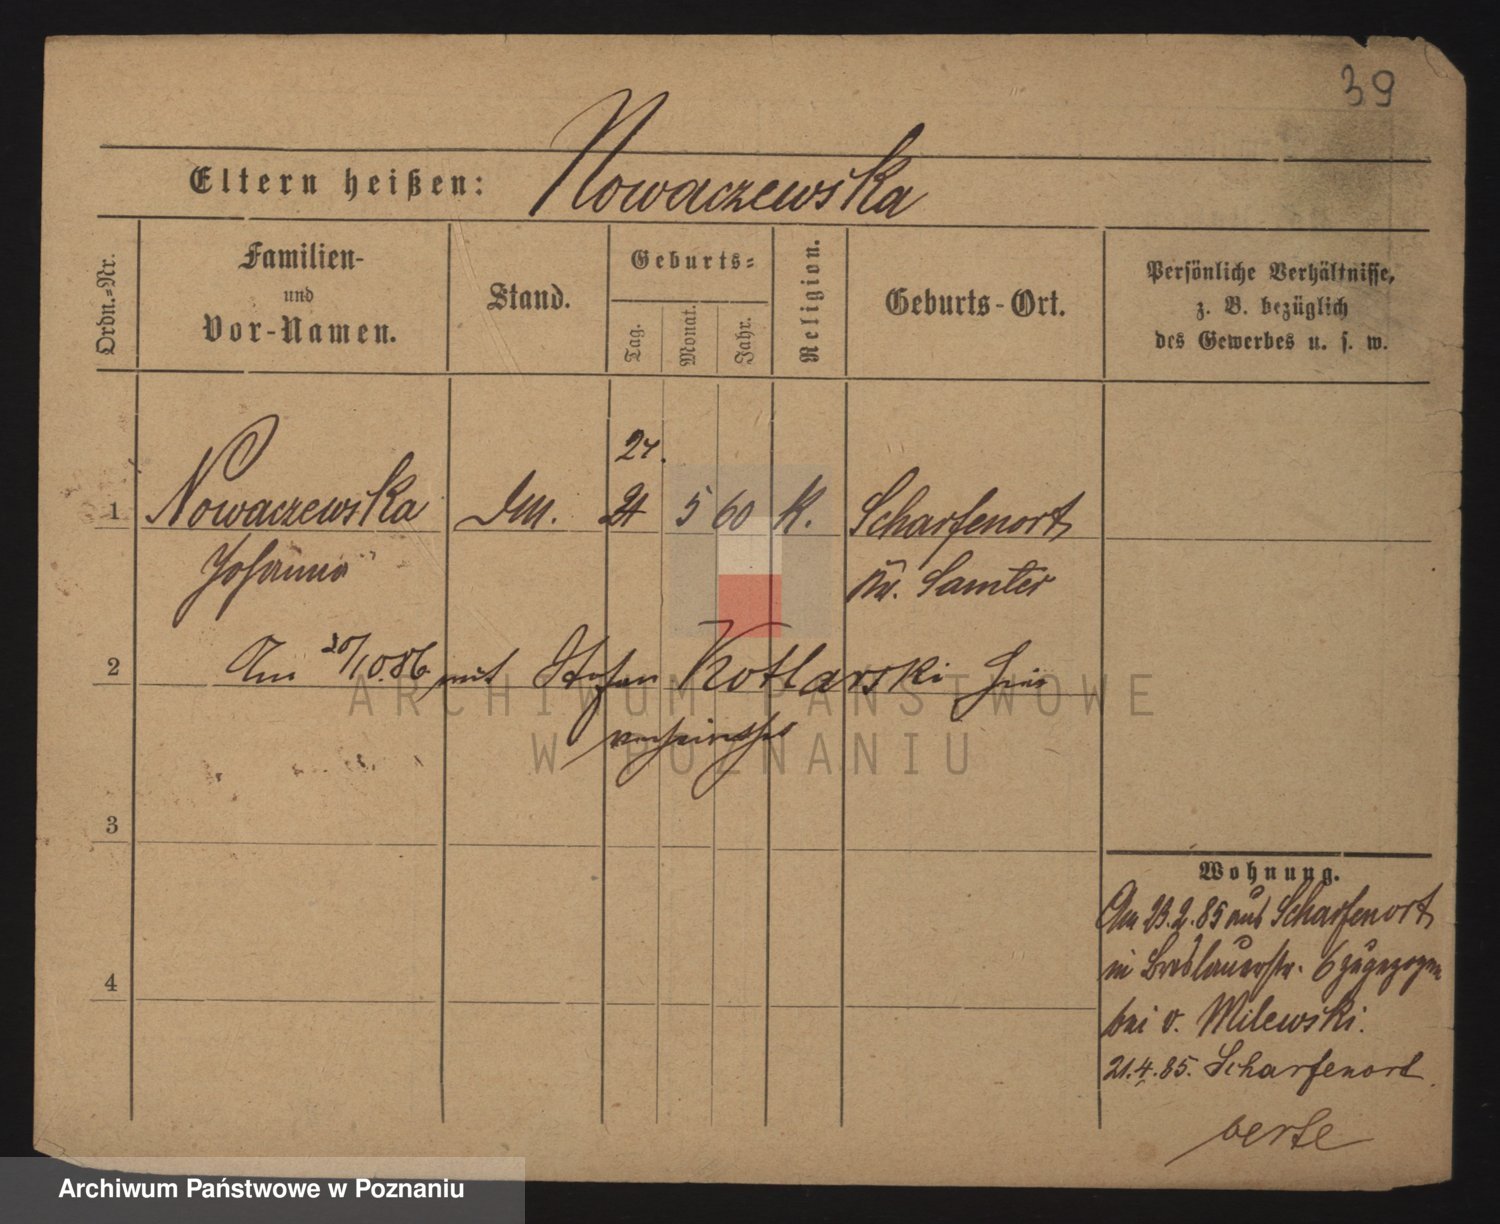 39
Eltern heißen: Nowaczewska
Ordn.=Nr.
Familien-
und
Vor-Namen.
Stand.
Geburts=
Tag.
Monat.
Jahr.
Religion.
Geburts-Ort.
Persönliche Verhältnisse,
z. B. bezüglich
des Gewerbes u. s. w.
24.
1 Nowaczewska 5 60 K. Scharfenort
Johanna Kr. Samter
2 Am 20/10.86 mit Stefan Kotlarski hier
verheirathet
ARCHIWUM PAŃSTWOWE
W POZNANIU
3
4
Wohnung.
Am 23.2.85 aus Scharfenort
in Breslauerstr. 6 zugezogen
bei v. Milewski.
21.4.85. Scharfenort
verte
Archiwum Państwowe w Poznaniu